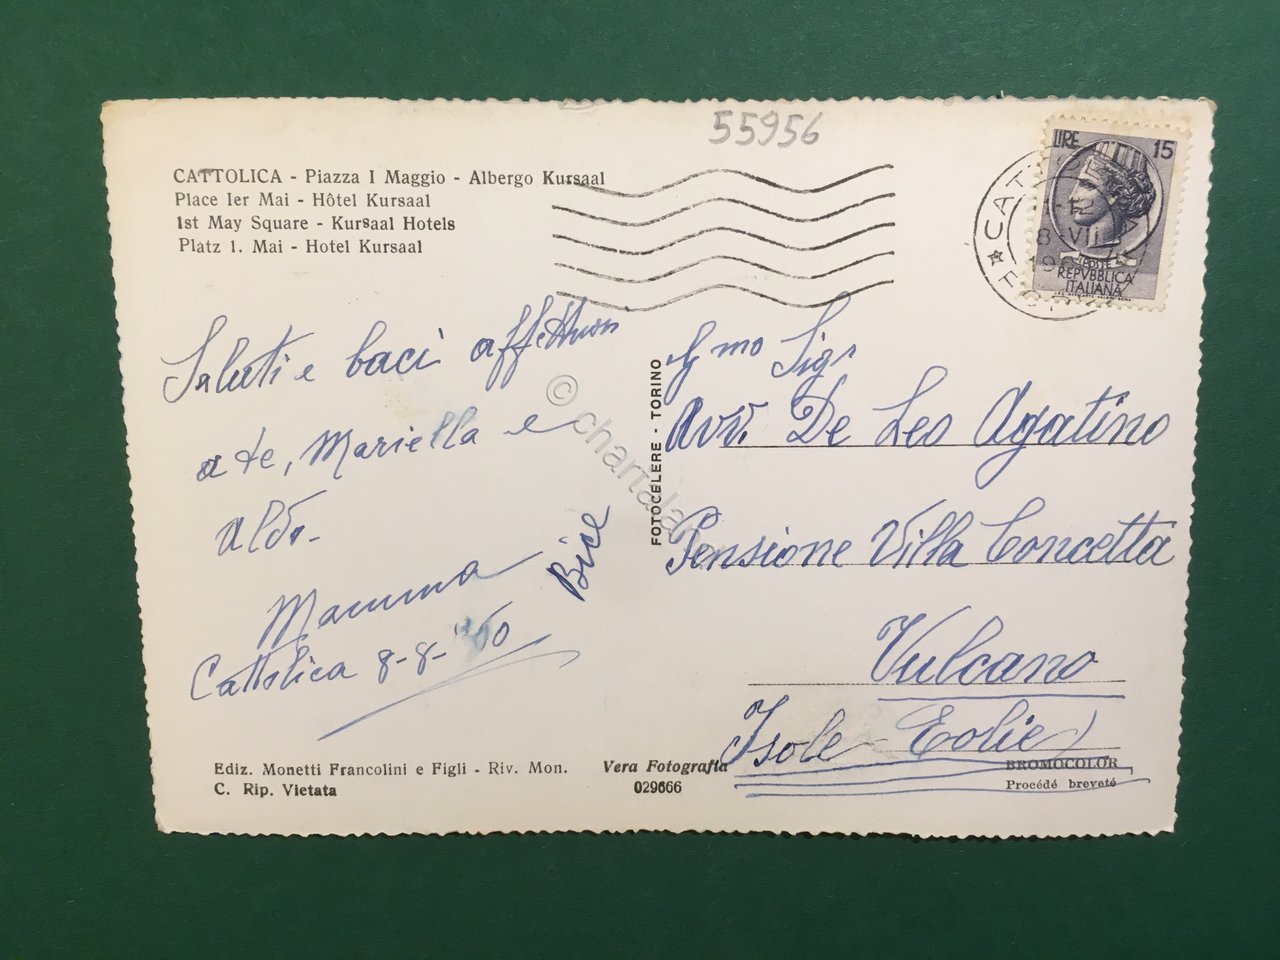 55956
CATTOLICA - Piazza I Maggio - Albergo Kursaal
Place Ier Mai - Hôtel Kursaal
1st May Square - Kursaal Hotels
Platz 1. Mai - Hotel Kursaal
LIRE 15
POSTE
REPVBBLICA
ITALIANA
Saluti e baci affettuosi
a te, Mariella e
Aldo.
Mamma
Bice
Cattolica 8-8-'60
FOTOCELERE - TORINO
© chartaland
Sigr
Avv. De Leo Agatino
Pensione Villa Concetta
Vulcano
Isole Eolie)
Ediz. Monetti Francolini e Figli - Riv. Mon.
C. Rip. Vietata
Vera Fotografia
029666
BROMOCOLOR
Procédé breveté